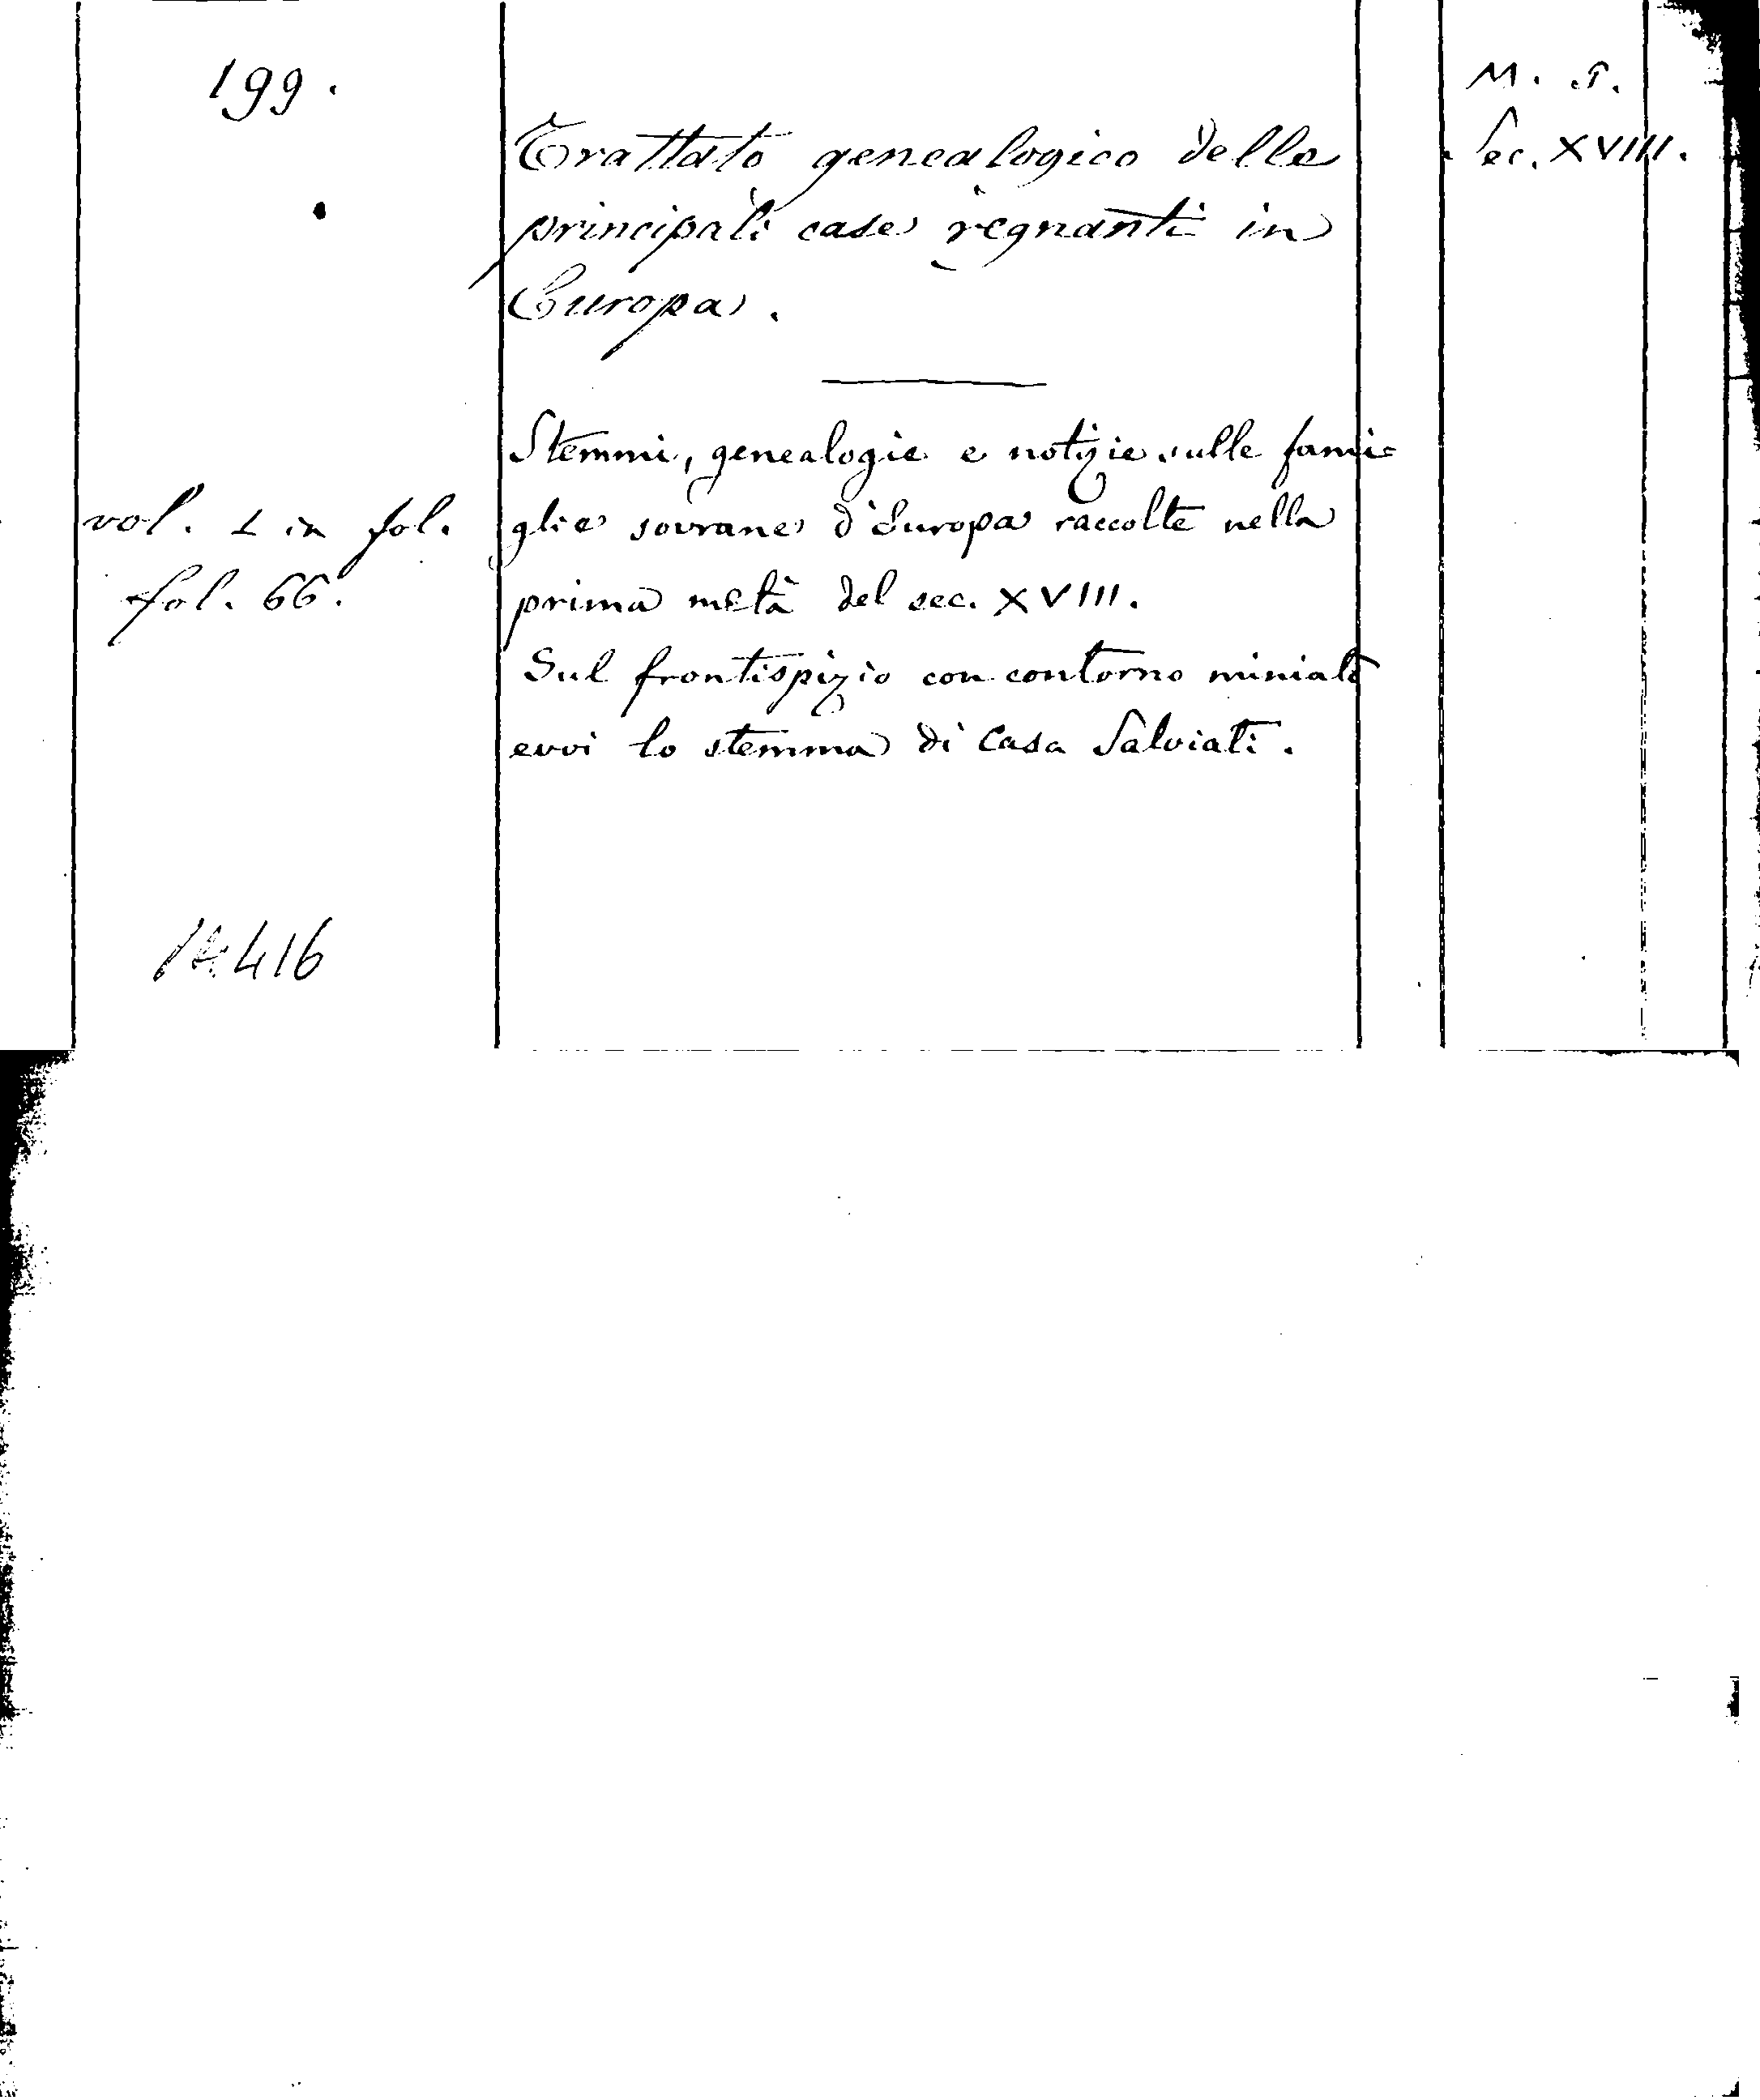 199.
M. S.
Sec. XVIII.
Trattato genealogico delle
principali case regnanti in
Europa.
Stemmi, genealogie e notizie sulle fami-
glie sovrane d'Europa raccolte nella
prima metà del sec. XVIII.
Sul frontispizio con contorno miniato
evvi lo stemma di Casa Salviati.
vol. 1 in fol.
fol. 66.
14416